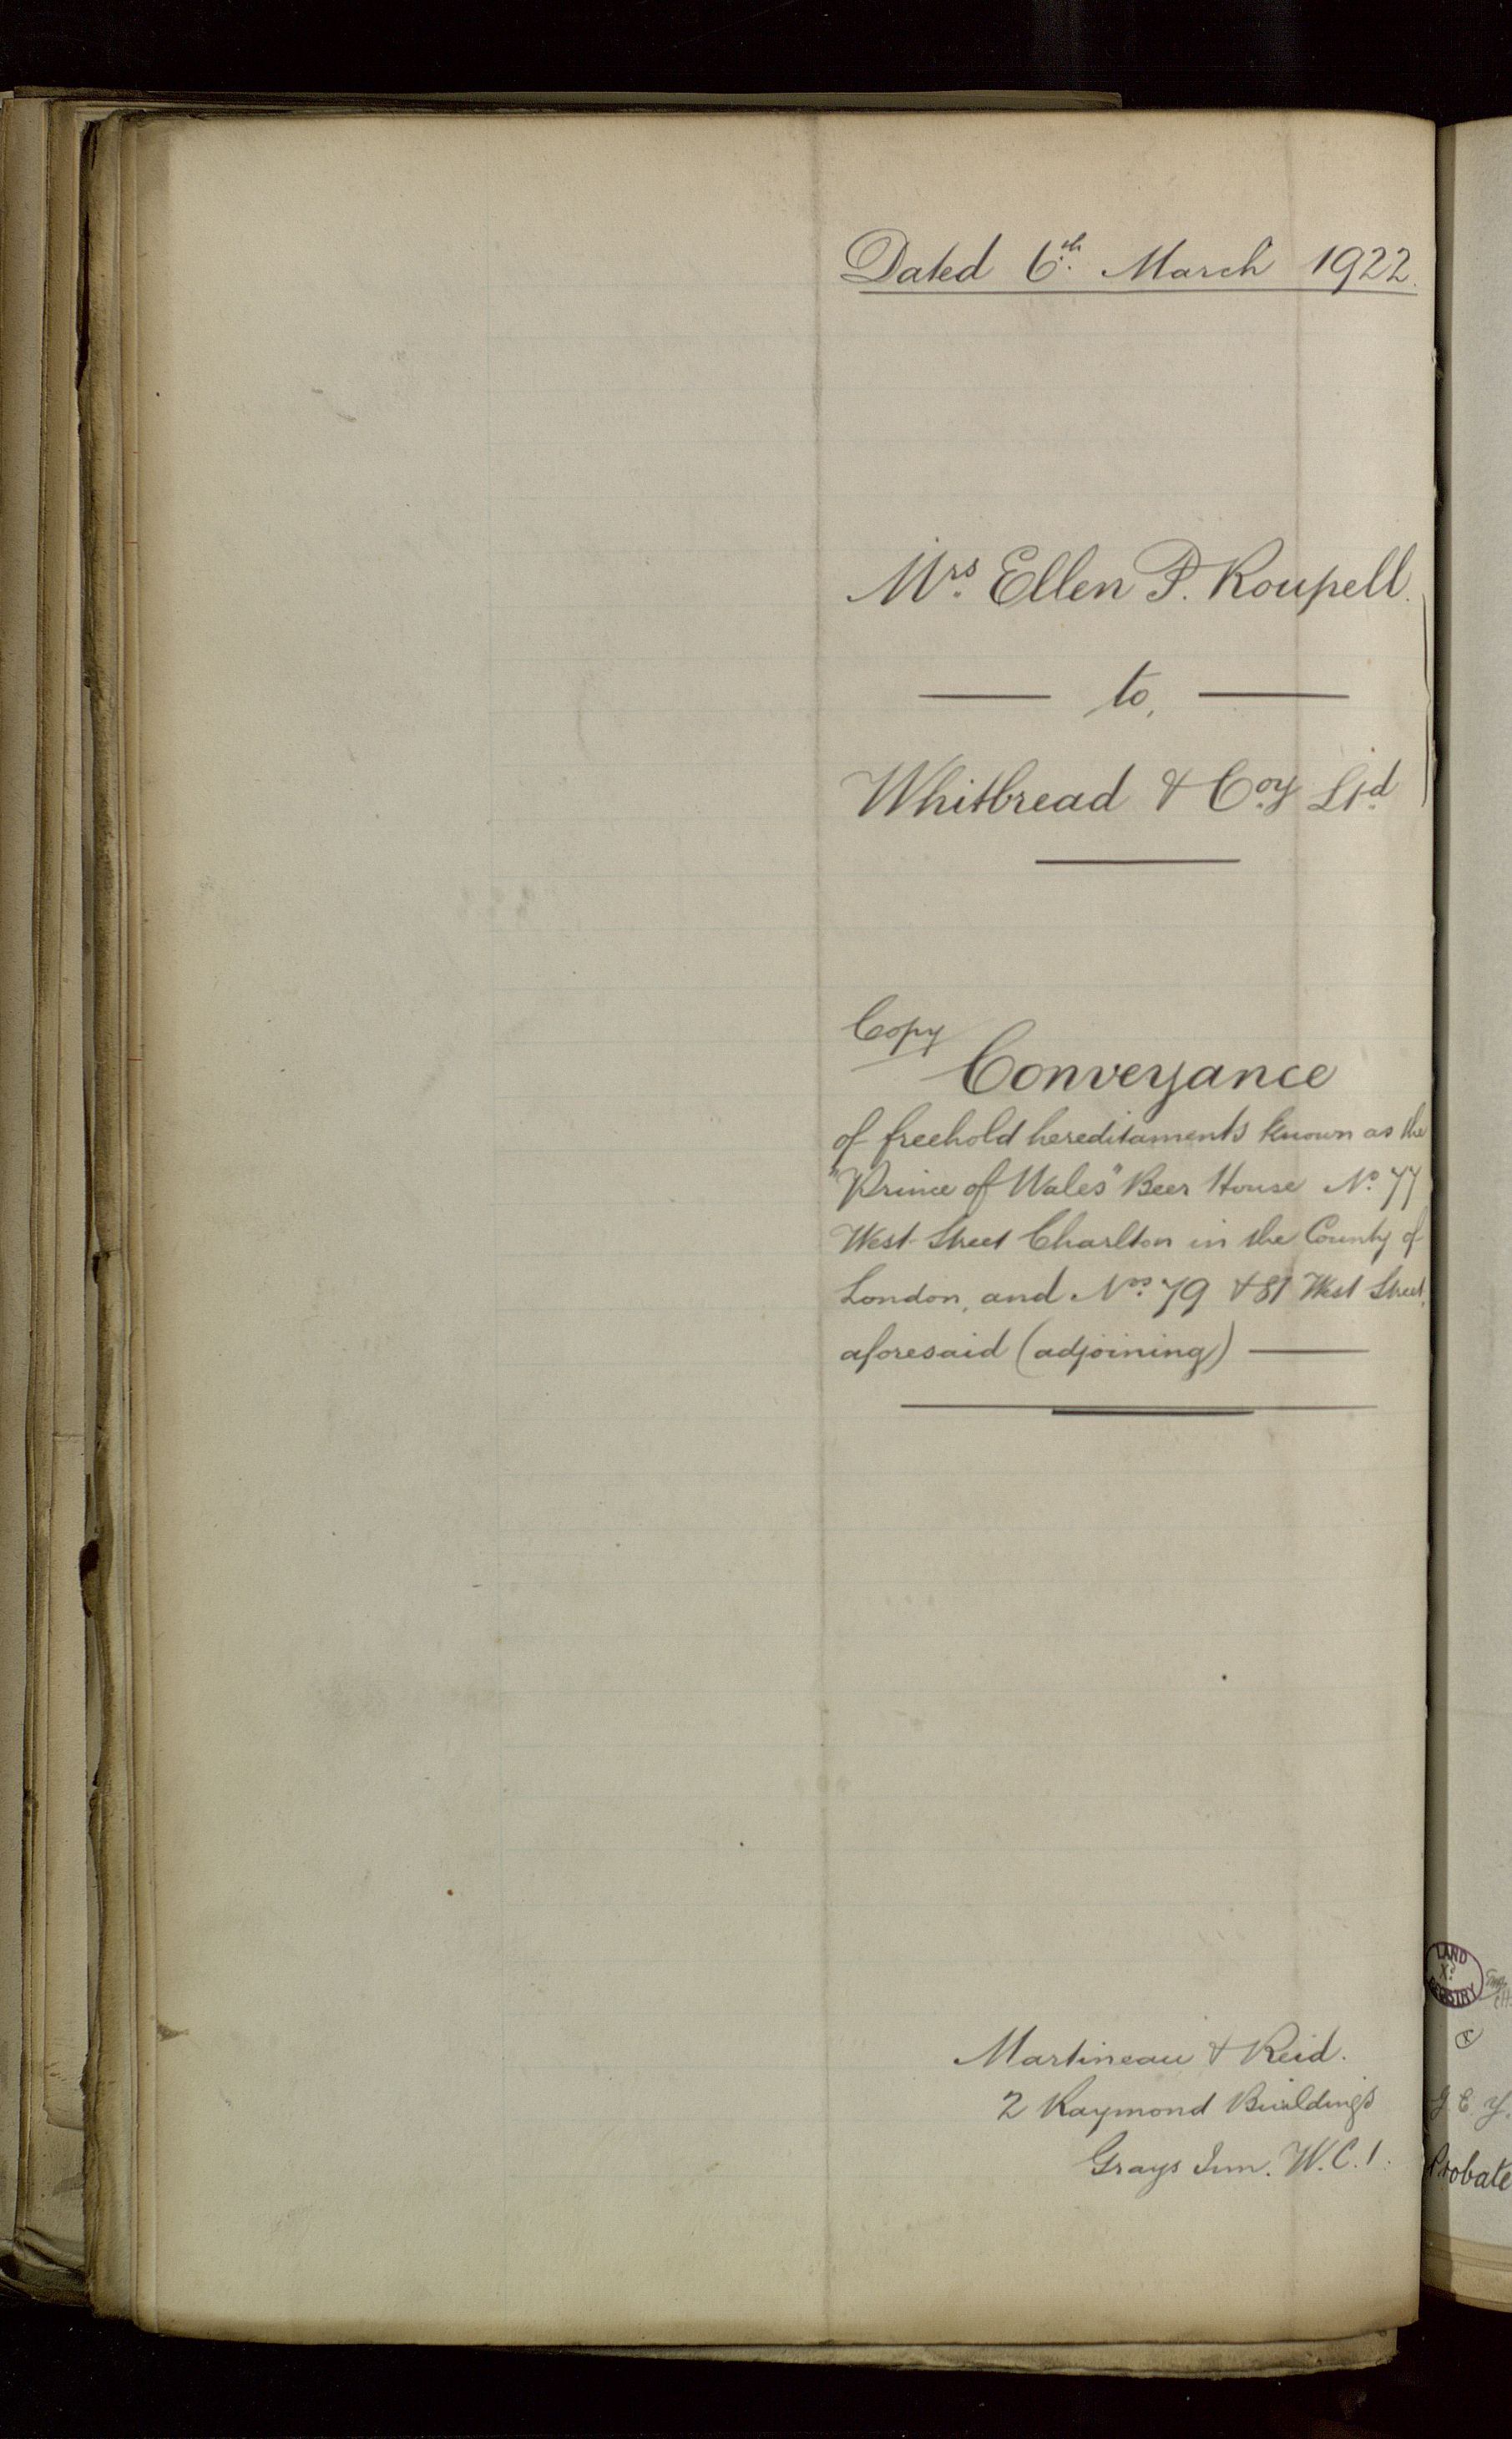 Dated 6th March 1922.
Mrs Ellen P. Roupell.
to
Whitbread & Coy Ltd
Copy
Conveyance
of freehold hereditaments known as the
"Prince of Wales" Beer House No. 77
West Street Charlton in the County of
London, and Nos. 79 & 81 West Street
aforesaid (adjoining)
Martineau & Reid.
2 Raymond Buildings
Grays Inn. W.C.1.
LAND
REGISTRY
Probate